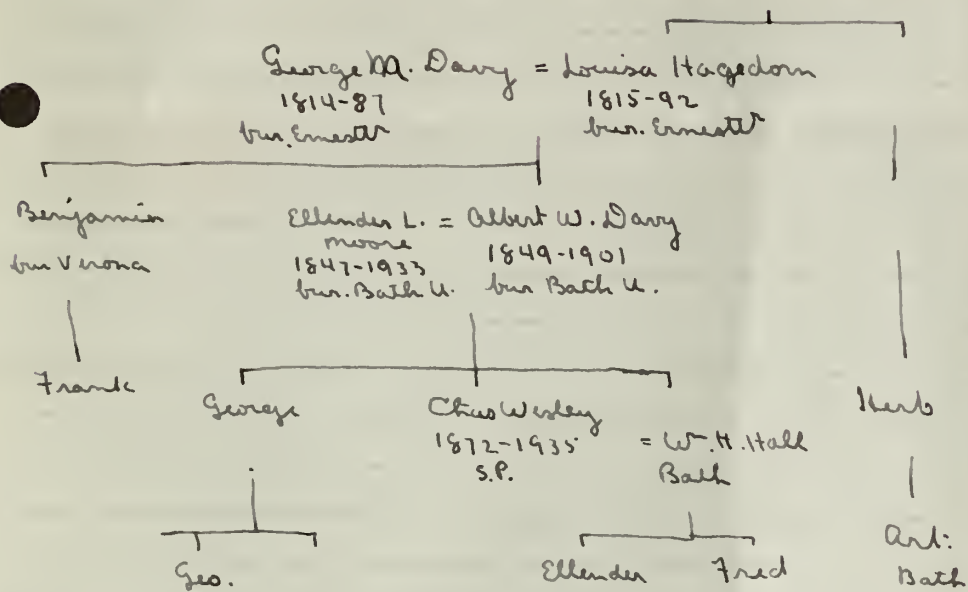 George M. Davy = Louisa Hagedorn
1814-87 1815-92
bur. Ernestt'n bur. Ernestt'n
Benjamin
bur Verona
Ellender L. = Albert W. Davy
Moore
1847-1933 1849-1901
bur. Bath U. bur Bath U.
Frank
George
Chas Wesley
1872-1935
S.P.
= W. H. Hall
Bath
Herb
Geo.
Ellender Fred
Art:
Bath